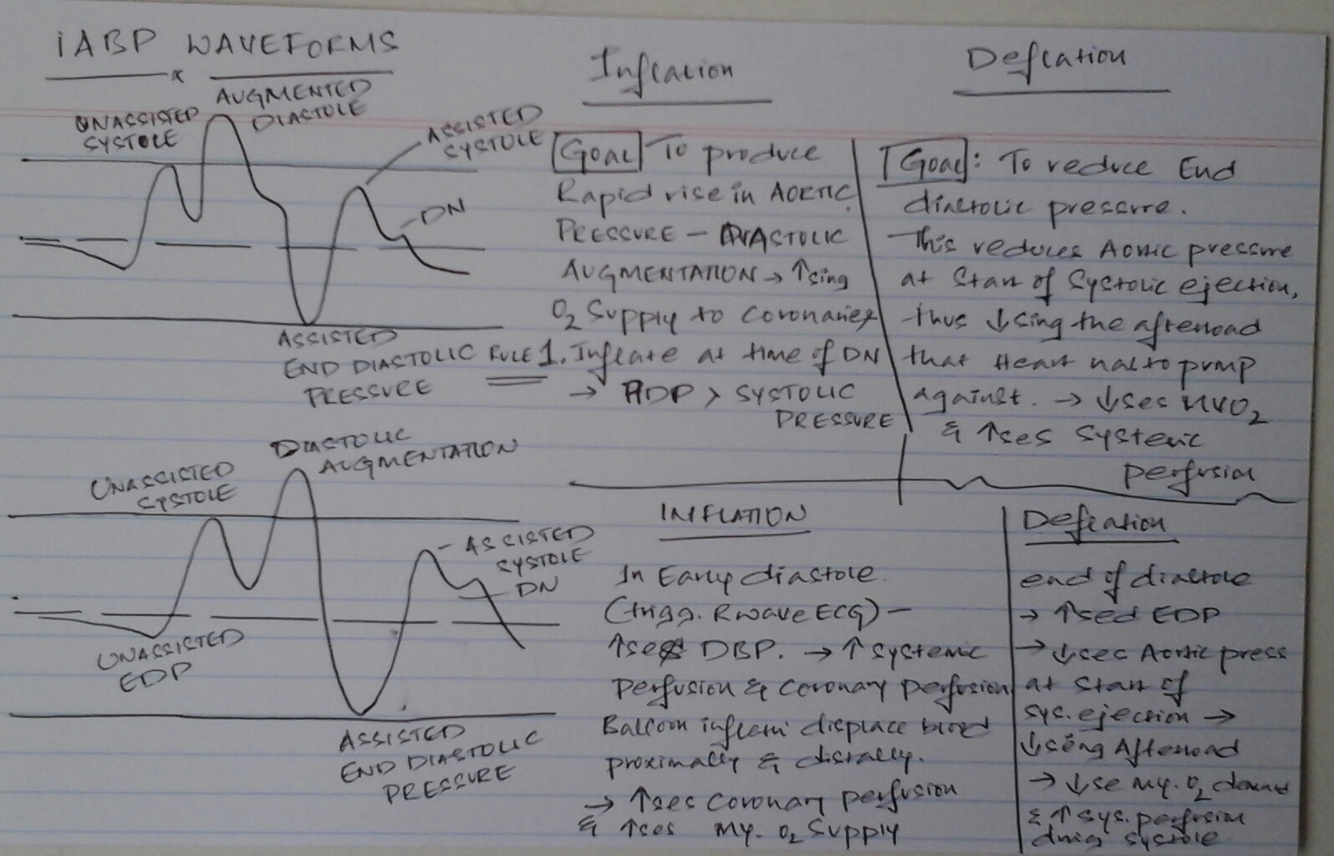 IABP WAVEFORMS
AUGMENTED
DIASTOLE
UNASSISTED
SYSTOLE
ASSISTED
SYSTOLE
DN
ASSISTED
END DIASTOLIC
PRESSURE
Inflation
Goal To produce
Rapid rise in AORTIC
PRESSURE - DIASTOLIC
AUGMENTATION → ↑sing
O2 Supply to coronaries
RULE 1. Inflate at time of DN
→ ADP > SYSTOLIC
PRESSURE
Deflation
Goal: To reduce End
diastolic pressure.
This reduces Aortic pressure
at Start of Systolic ejection,
thus ↓sing the afterload
that Heart has to pump
against. → ↓ses MVO2
& ↑ses Systemic
perfusion
DIASTOLIC
AUGMENTATION
UNASSISTED
SYSTOLE
ASSISTED
SYSTOLE
DN
UNASSISTED
EDP
ASSISTED
END DIASTOLIC
PRESSURE
INFLATION
In Early diastole.
(trigg. R wave ECG) -
↑ses DBP. → ↑ Systemic
Perfusion & Coronary Perfusion
Balloon displace blood
proximally & distally.
→ ↑ses Coronary perfusion
& ↑ses My. O2 Supply
Deflation
end of diastole
→ ↑sed EDP
→ ↓ses Aortic press
at Start of
sys. ejection →
↓sing Afterload
→ ↓se My. O2 demand
& ↑ Sys. perfusion
during systole